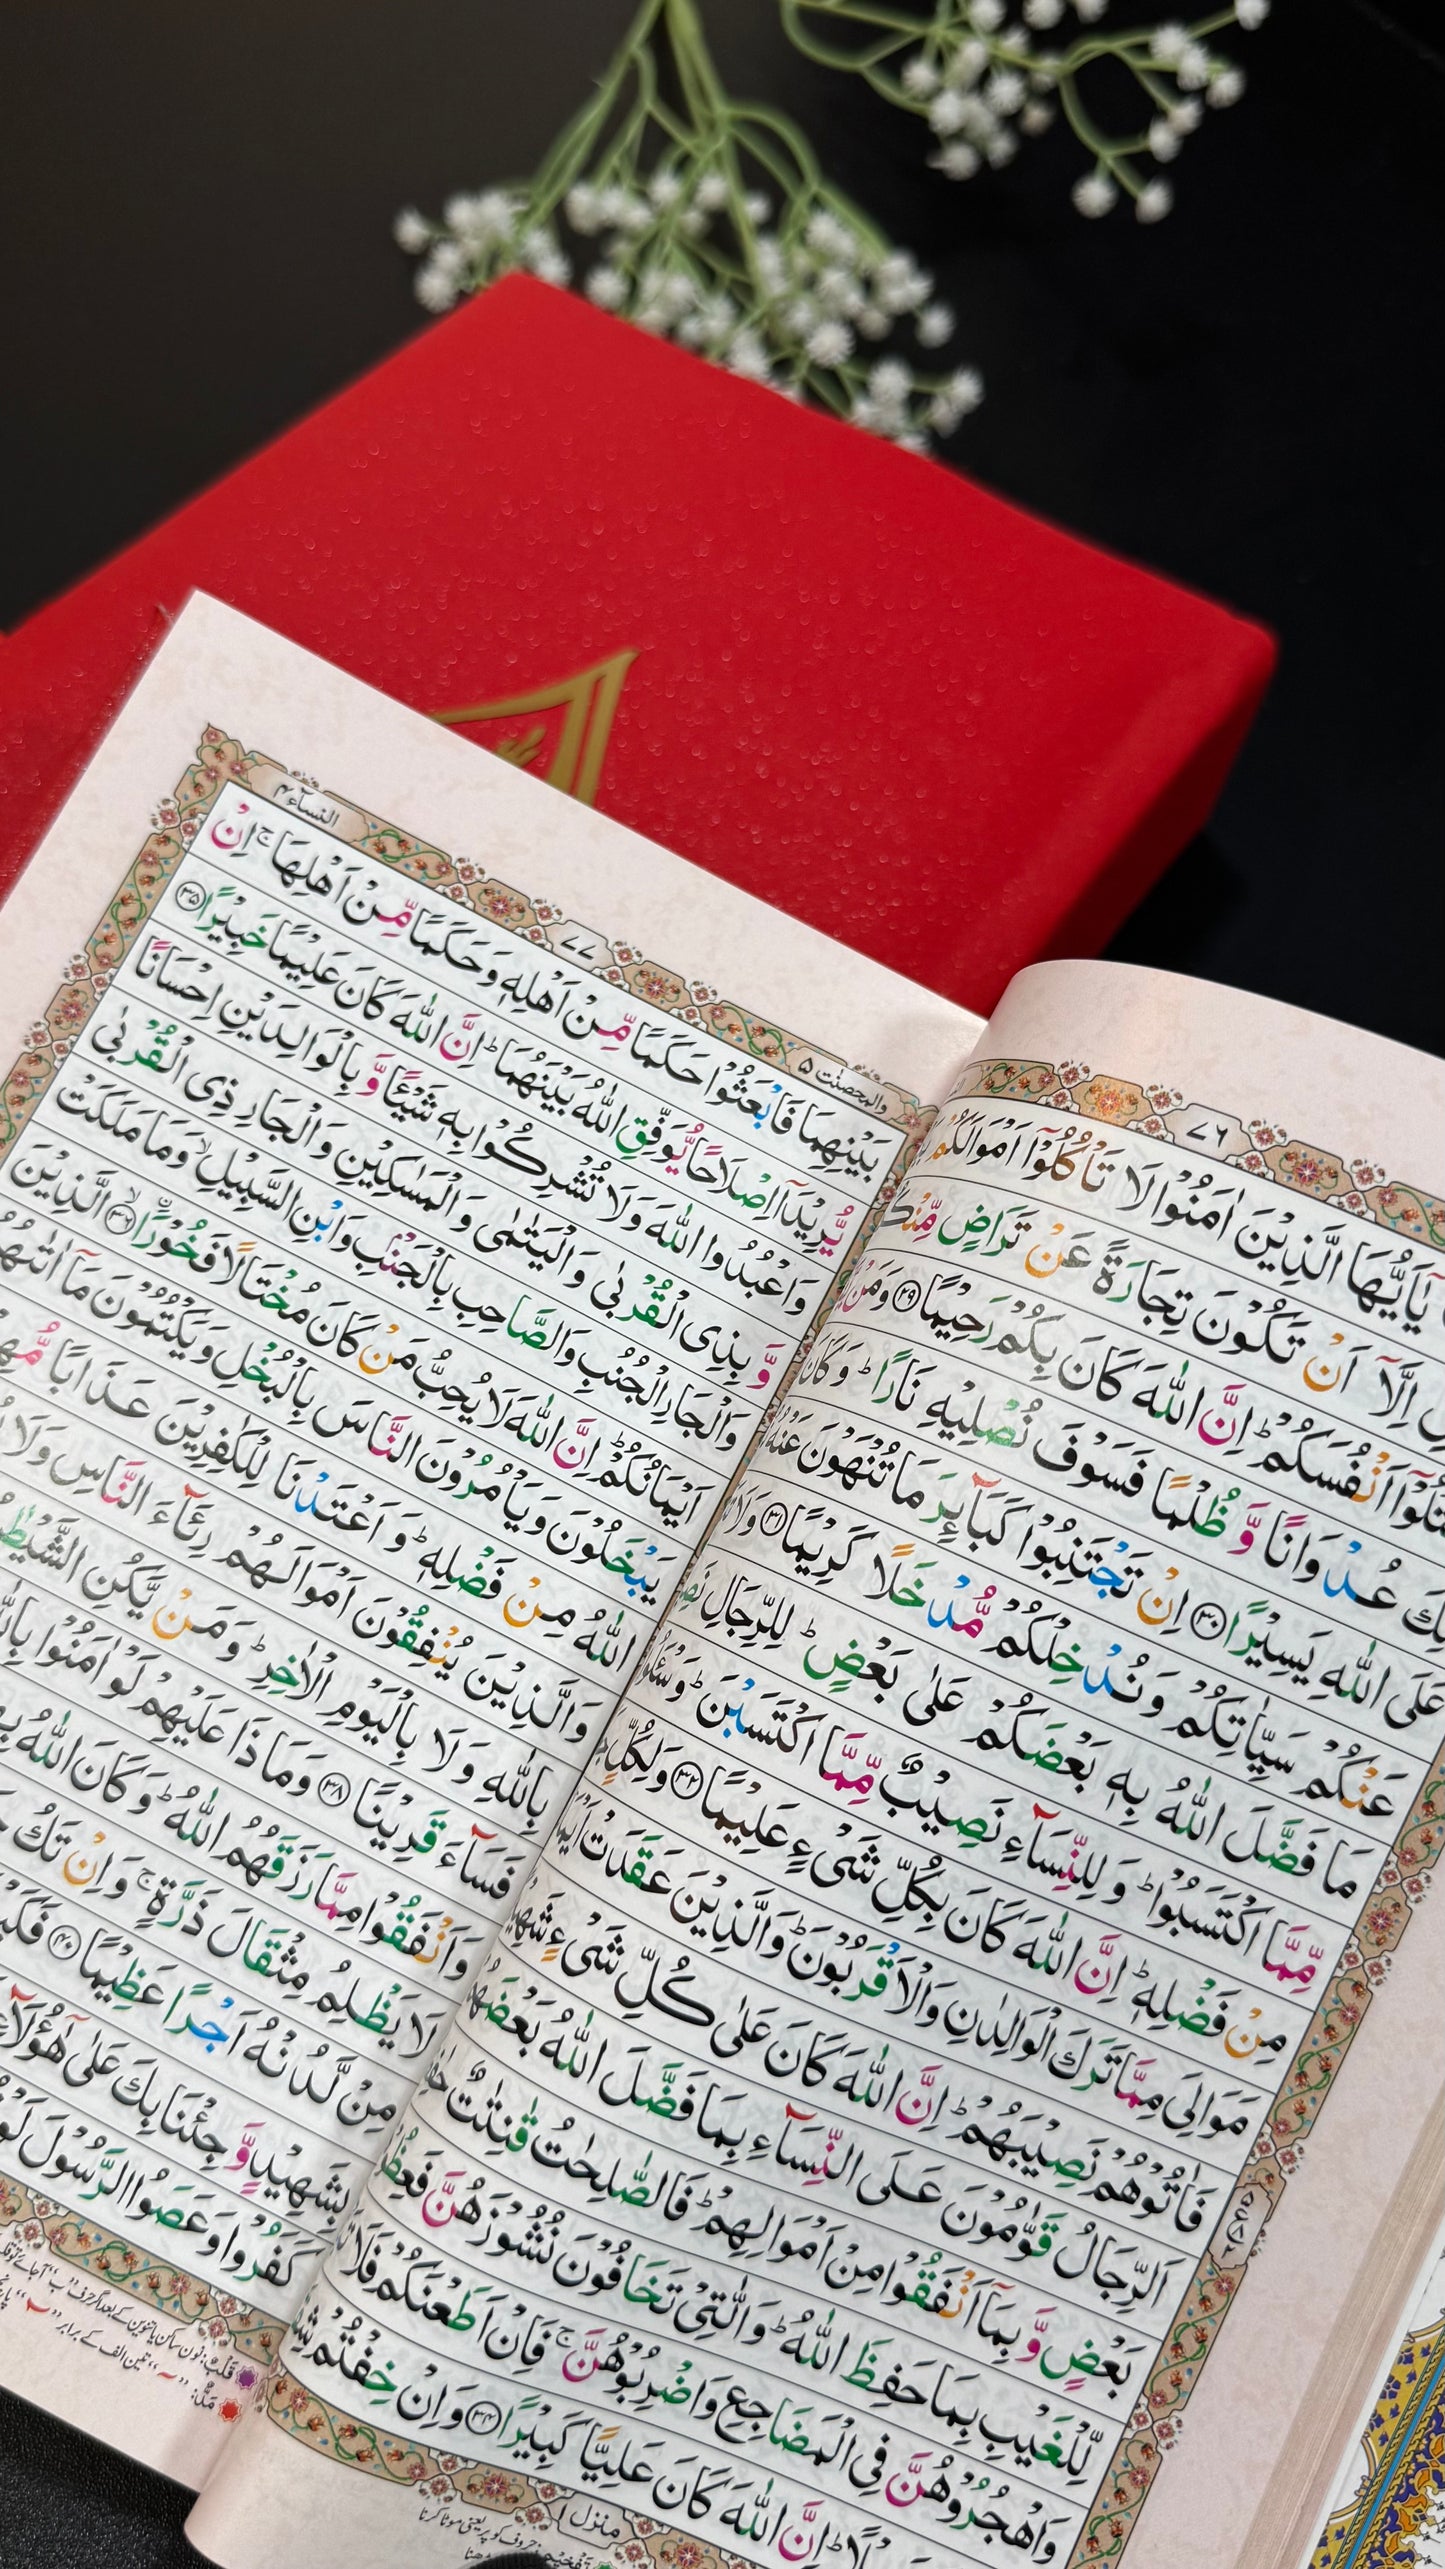 ۷۶
يٰۤاَيُّهَا الَّذِيْنَ اٰمَنُوْا لَا تَاْكُلُوْۤا اَمْوَالَكُمْ
اِلَّاۤ اَنْ تَكُوْنَ تِجَارَةً عَنْ تَرَاضٍ
اَنْفُسَكُمْ ؕ اِنَّ اللّٰهَ كَانَ بِكُمْ رَحِيْمًا ۲۹ وَمَنْ
عُدْوَانًا وَّظُلْمًا فَسَوْفَ نُصْلِيْهِ نَارًا ؕ وَكَانَ
عَلَى اللّٰهِ يَسِيْرًا ۳۰ اِنْ تَجْتَنِبُوْا كَبَآئِرَ مَا تُنْهَوْنَ عَنْهُ
عَنْكُمْ سَيِّاٰتِكُمْ وَنُدْخِلْكُمْ مُّدْخَلًا كَرِيْمًا ۳۱ وَلَا
مَا فَضَّلَ اللّٰهُ بِهٖ بَعْضَكُمْ عَلٰى بَعْضٍ ؕ لِلرِّجَالِ
مِّمَّا اكْتَسَبُوْا ؕ وَلِلنِّسَآءِ نَصِيْبٌ مِّمَّا اكْتَسَبْنَ ؕ
مِنْ فَضْلِهٖ ؕ اِنَّ اللّٰهَ كَانَ بِكُلِّ شَىْءٍ عَلِيْمًا ۳۲ وَلِكُلٍّ
مَوَالِىَ مِمَّا تَرَكَ الْوَالِدٰنِ وَالْاَقْرَبُوْنَ ؕ وَالَّذِيْنَ عَقَدَتْ
فَاٰتُوْهُمْ نَصِيْبَهُمْ ؕ اِنَّ اللّٰهَ كَانَ عَلٰى كُلِّ شَىْءٍ
اَلرِّجَالُ قَوّٰمُوْنَ عَلَى النِّسَآءِ بِمَا فَضَّلَ اللّٰهُ
بَعْضٍ وَّبِمَاۤ اَنْفَقُوْا مِنْ اَمْوَالِهِمْ ؕ فَالصّٰلِحٰتُ قٰنِتٰتٌ
لِّلْغَيْبِ بِمَا حَفِظَ اللّٰهُ ؕ وَالّٰتِىْ تَخَافُوْنَ نُشُوْزَهُنَّ
وَاهْجُرُوْهُنَّ فِى الْمَضَاجِعِ وَاضْرِبُوْهُنَّ ۚ فَاِنْ اَطَعْنَكُمْ فَلَا
اِنَّ اللّٰهَ كَانَ عَلِيًّا كَبِيْرًا ۳۴ وَاِنْ خِفْتُمْ
منزل ۱
والمحصنٰت ۵ ۷۷ النساۤء ۴
بَيْنِهِمَا فَابْعَثُوْا حَكَمًا مِّنْ اَهْلِهٖ وَحَكَمًا مِّنْ اَهْلِهَا ۚ اِنْ
يُّرِيْدَاۤ اِصْلَاحًا يُّوَفِّقِ اللّٰهُ بَيْنَهُمَا ؕ اِنَّ اللّٰهَ كَانَ عَلِيْمًا خَبِيْرًا ۳۵
وَاعْبُدُوا اللّٰهَ وَلَا تُشْرِكُوْا بِهٖ شَيْئًا وَّبِالْوَالِدَيْنِ اِحْسَانًا
وَّبِذِى الْقُرْبٰى وَالْيَتٰمٰى وَالْمَسٰكِيْنِ وَالْجَارِ ذِى الْقُرْبٰى
وَالْجَارِ الْجُنُبِ وَالصَّاحِبِ بِالْجَنْۢبِ وَابْنِ السَّبِيْلِ ۙ وَمَا مَلَكَتْ
اَيْمَانُكُمْ ؕ اِنَّ اللّٰهَ لَا يُحِبُّ مَنْ كَانَ مُخْتَالًا فَخُوْرًا ۳۶ الَّذِيْنَ
يَبْخَلُوْنَ وَيَاْمُرُوْنَ النَّاسَ بِالْبُخْلِ وَيَكْتُمُوْنَ مَاۤ اٰتٰىهُمُ
اللّٰهُ مِنْ فَضْلِهٖ ؕ وَاَعْتَدْنَا لِلْكٰفِرِيْنَ عَذَابًا
وَالَّذِيْنَ يُنْفِقُوْنَ اَمْوَالَهُمْ رِئَآءَ النَّاسِ وَلَا
بِاللّٰهِ وَلَا بِالْيَوْمِ الْاٰخِرِ ؕ وَمَنْ يَّكُنِ
فَسَآءَ قَرِيْنًا ۳۸ وَمَاذَا عَلَيْهِمْ لَوْ اٰمَنُوْا
وَاَنْفَقُوْا مِمَّا رَزَقَهُمُ اللّٰهُ ؕ وَكَانَ اللّٰهُ
لَا يَظْلِمُ مِثْقَالَ ذَرَّةٍ ۚ وَاِنْ تَكُ
مِنْ لَّدُنْهُ اَجْرًا عَظِيْمًا ۴۰
بِشَهِيْدٍ وَّجِئْنَا بِكَ عَلٰى هٰۤؤُلَآءِ
كَفَرُوْا وَعَصَوُا الرَّسُوْلَ لَوْ